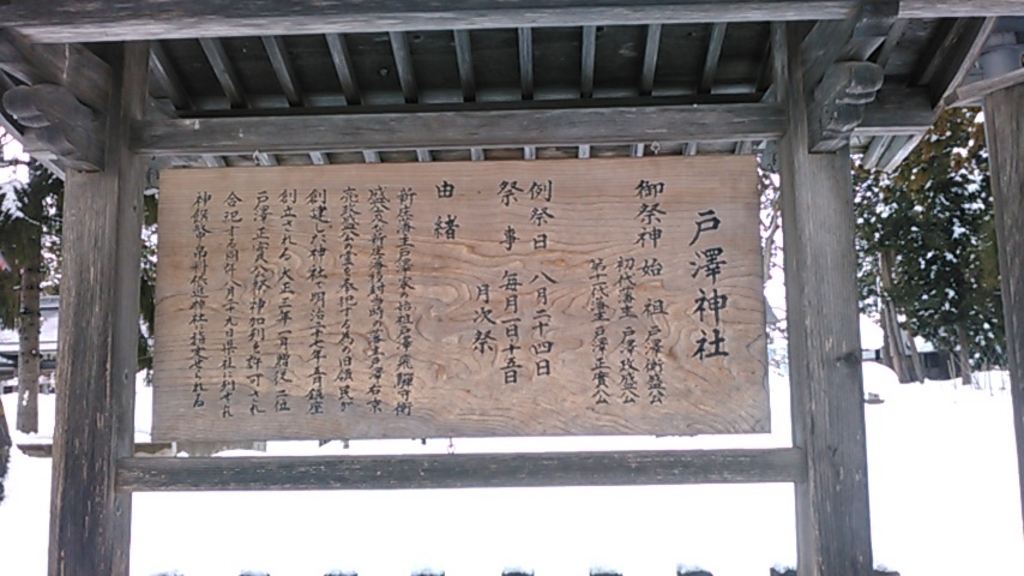 戸澤神社
御祭神 始祖 戸澤衡盛公
初代藩主 戸澤政盛公
第十一代藩主 戸澤正實公
例祭日 八月二十四日
祭事 毎月一日十五日
月次祭
由緒
新庄藩主戸澤家の始祖戸澤飛騨守衡
盛公と新庄藩開府時の藩主戸澤右京
亮政盛公の霊を奉祀する為め旧領民が
創建した神社で明治二十七年五月鎮座
創立される 大正三年一月贈従三位
戸澤正實公祭神加列を許可され
合祀する同年八月十九日県社に列せられ
神饌幣帛料供進神社に指定される